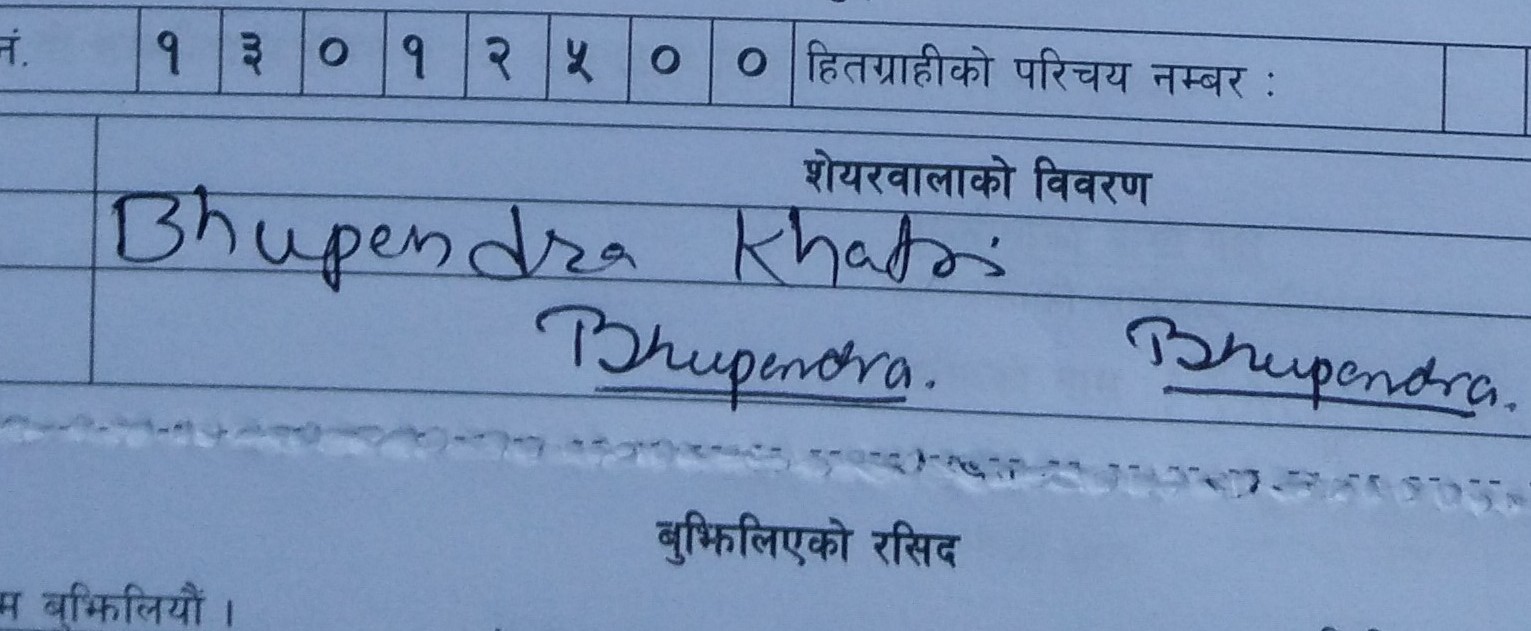 नं. १ ३ ० १ २ ५ ० ० हितग्राहीको परिचय नम्बर :
शेयरवालाको विवरण
Bhupendra Khatri
Bhupendra. Bhupendra.
बुझिलिएको रसिद
म बुझिलियौं ।